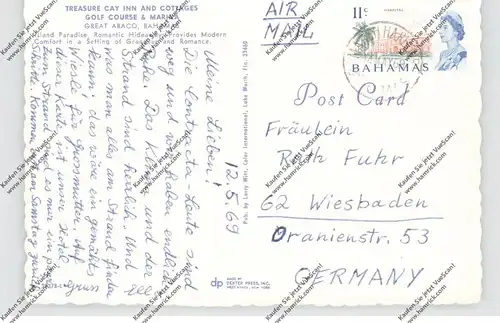 TREASURE CAY INN AND COTTAGES
GOLF COURSE & MARINA
GREAT ABACO, BAHAMAS
Island Paradise. Romantic Hideaway Provides Modern
Comfort in a Setting of and Romance.
12.5.69
Meine Lieben!
Die Contracta-Leute sind
weg und wir haben endlich
Ruhe. Das und der
Strand sind herrlich. Und
was man alles am Strand finden
kann, das wäre ein gemähtes
Wiesle für Grossmutter. Auf
dieser Karte ist unser Hotel
zum Strand sind es nur ein paar
Schritt. Kommen am Samstag zurück
Gruss
Pub. by Larry Witt, Color International, Lake Worth, Fla. 33460
dp
MADE BY
DEXTER PRESS, INC.
WEST NYACK, NEW YORK
AIR
MAIL
11c
BAHAMAS
Post Card
Fräulein
Ruth Fuhr
62 Wiesbaden
Oranienstr. 53
GERMANY
Kaufen Sie jetzt VueScan!
www.hamrick.com